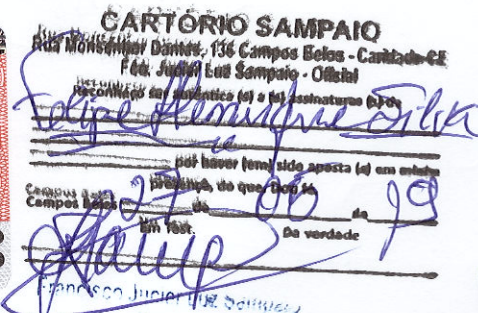 CARTÓRIO SAMPAIO
Rua Monsenhor Dantas, 136 Campos Belos - Caridade-CE
Fco. Jucier Luz Sampaio - Oficial
Reconheço ser autêntica (s) a (s) assinaturas (s) de
Felipe Henrique Silva
por haver (em) sido aposta (s) em minha
presença, do que, Dou fé.
Campos Belos 27 de 06 de 19
Em Test. Da verdade
Francisco Jucier Luz Sampaio